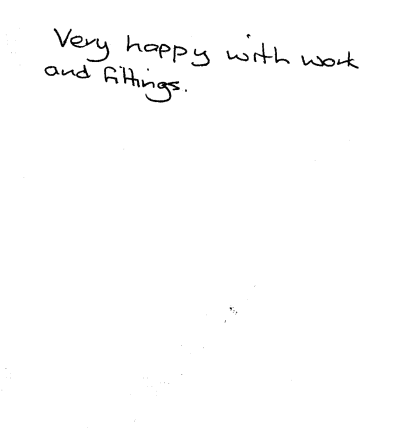 Very happy with work
and fittings.